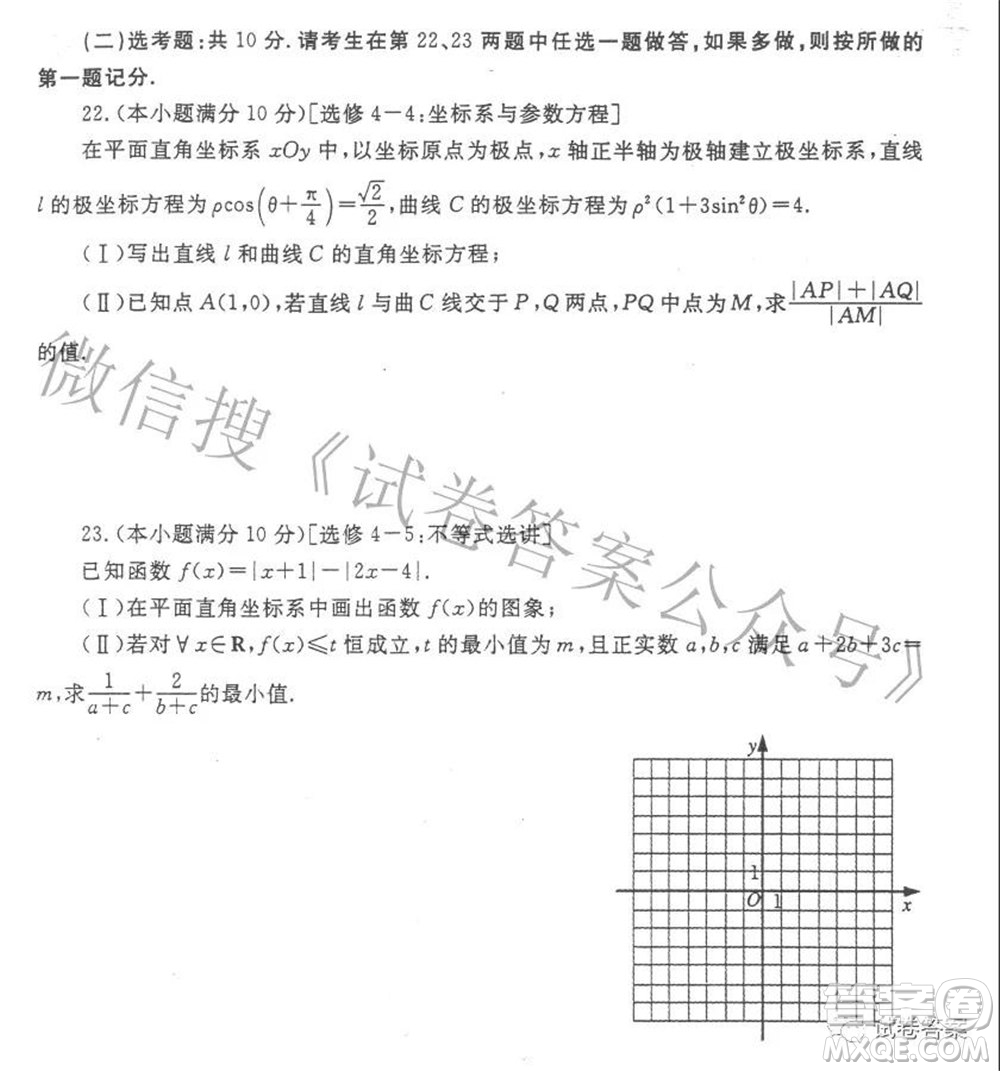 (二)选考题:共 10 分.请考生在第 22、23 两题中任选一题做答,如果多做,则按所做的
第一题记分.
22.(本小题满分 10 分)[选修 4-4:坐标系与参数方程]
在平面直角坐标系 xOy 中,以坐标原点为极点,x 轴正半轴为极轴建立极坐标系,直线
l 的极坐标方程为 ρcos(θ+π/4)=√2/2,曲线 C 的极坐标方程为 ρ²(1+3sin²θ)=4.
(Ⅰ)写出直线 l 和曲线 C 的直角坐标方程;
(Ⅱ)已知点 A(1,0),若直线 l 与曲C 线交于 P,Q 两点,PQ 中点为 M,求 (|AP|+|AQ|)/|AM|
的值.
微信搜《试卷答案公众号》
23.(本小题满分 10 分)[选修 4-5:不等式选讲]
已知函数 f(x)=|x+1|-|2x-4|.
(Ⅰ)在平面直角坐标系中画出函数 f(x)的图象;
(Ⅱ)若对∀x∈R,f(x)≤t 恒成立,t 的最小值为 m,且正实数 a,b,c 满足 a+2b+3c=
m,求 1/(a+c)+2/(b+c) 的最小值.
y
1
O 1
x
答案圈
试卷答案
MXQE.COM